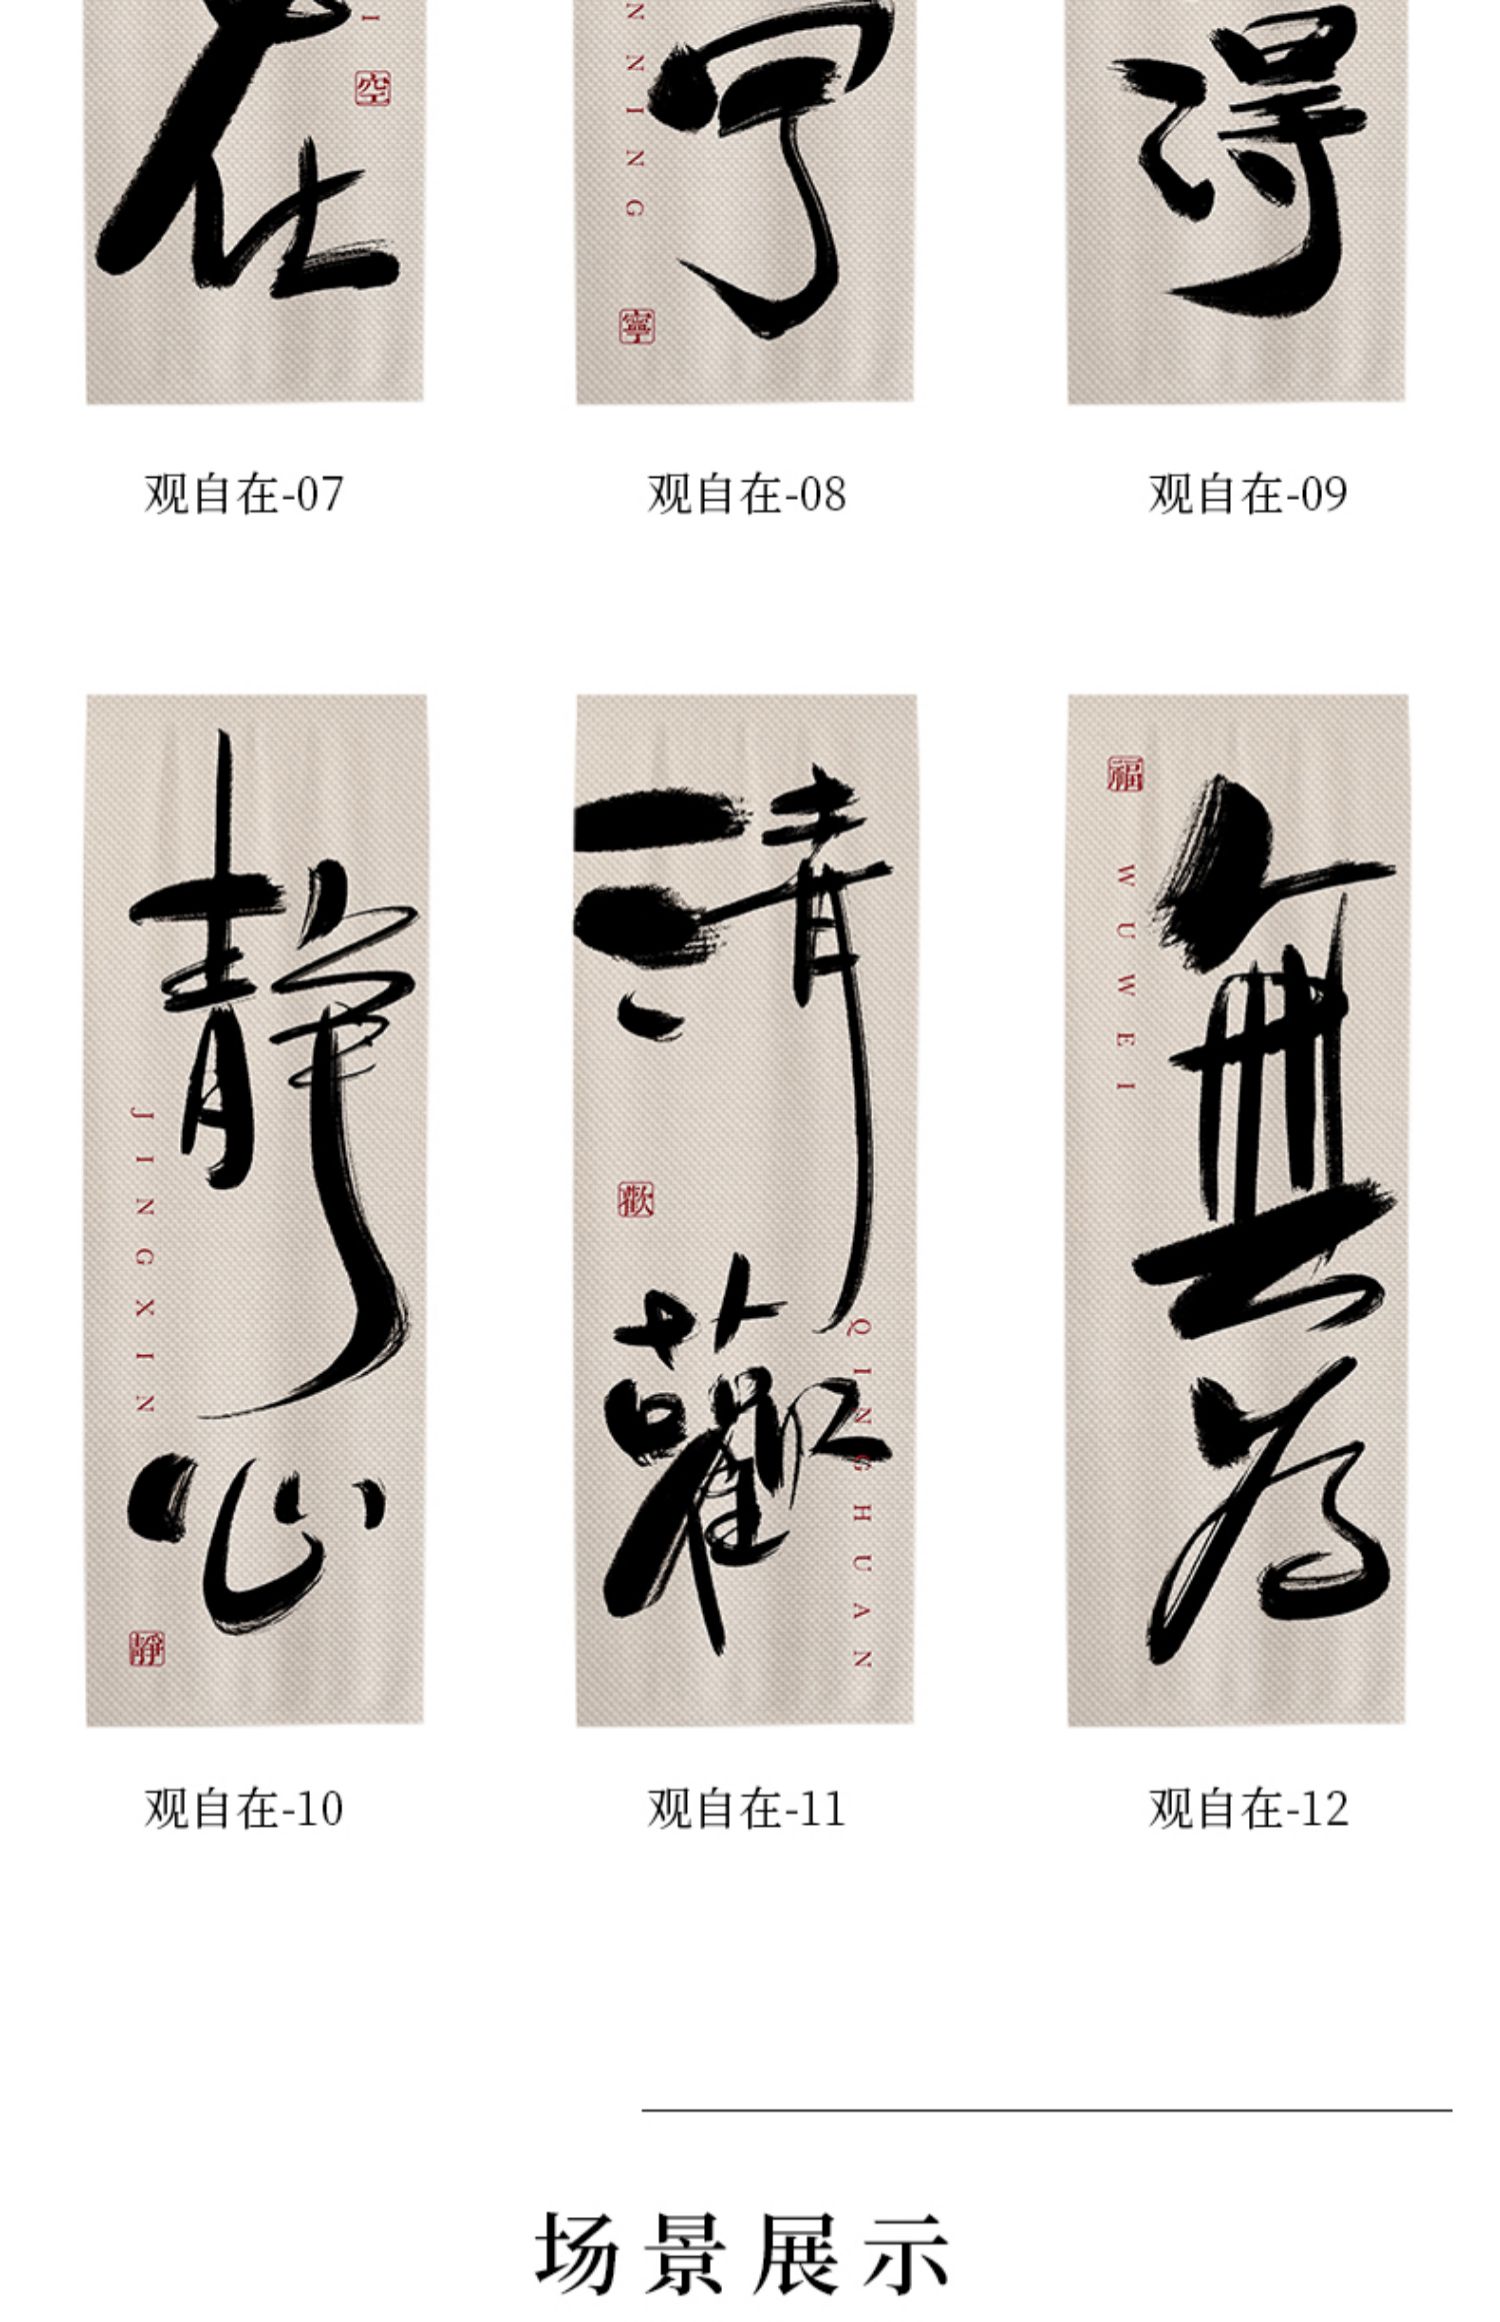 在
I
空
NNING
宁
寧
得
观自在-07
观自在-08
观自在-09
静心
JINGXIN
靜
清歡
歡
QINGHUAN
福
WUWEI
無为
观自在-10
观自在-11
观自在-12
场景展示